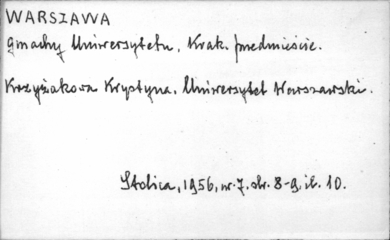 WARSZAWA
Gmachy Uniwersytetu, Krak. Przedmieście.
Krzyżakowa Krystyna. Uniwersytet Warszawski.
Stolica, 1956, nr. 7. str. 8-9. il. 10.